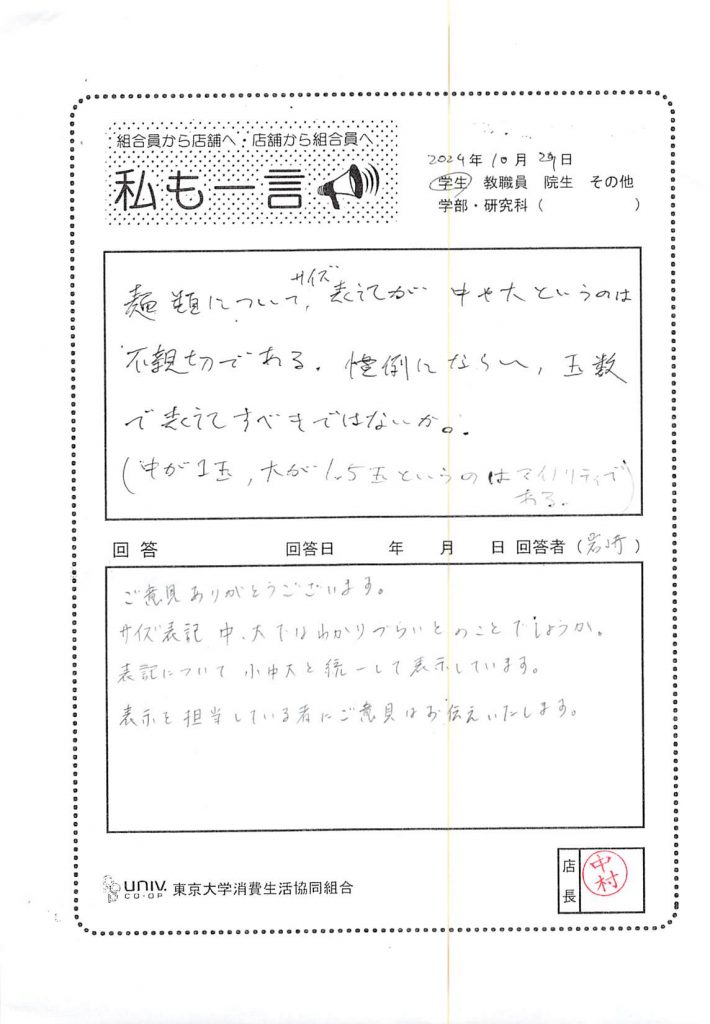 組合員から店舗へ・店舗から組合員へ
私も一言
2024年10月29日
学生 教職員 院生 その他
学部・研究科( )
麺類について、サイズ表記が 中や大というのは
不親切である。慣例にならい、玉数
で表記すべきではないか。
(中が1玉,大が1.5玉というのはマイノリティで
ある。)
回答 回答日 年 月 日 回答者(岩崎)
ご意見ありがとうございます。
サイズ表記 中、大ではわかりづらいとのことでしょうか。
表記について 小中大と統一して表示しています。
表示を担当している者にご意見はお伝えいたします。
UNIV. CO-OP 東京大学消費生活協同組合
店長 中村